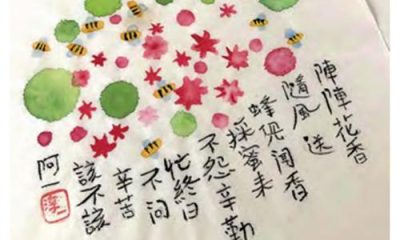 陣陣花香
隨風送
蜂兒聞香
採蜜來
不怨辛勤
忙終日
不問
辛苦
該不該
阿一